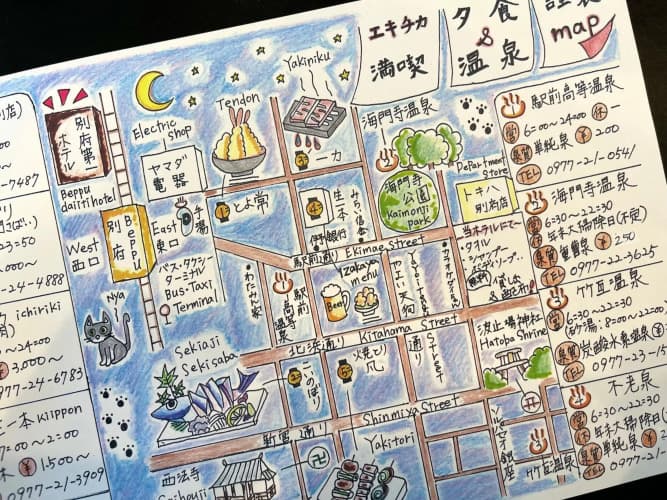 エキチカ
満喫
夕食
&
温泉
map
Yakiniku
Tendon
Electric
Shop
ヤマダ
電器
別府第一
ホテル
Beppu
daiitihotel
別府
Beppu
West
西口
East
東口
手湯
バス・タクシー
ターミナル
Bus・Taxi
Terminal
とよ常
一力
生一本
伊予銀行
海門寺温泉
海門寺
公園
Kaimonji
park
Department
Store
トキハ
別府店
駅前通り Ekimae Street
駅前
高等温泉
Izakaya
menu
Beer
やよい天狗
Nya
北浜通り Kitahama Street
Street
通り
波止場神社
Hatoba Shrine
Sekiaji
Sekisaba
こいのぼり
新宮通り Shinmiya Street
西法寺
Saihouji
Yakitori
竹瓦温泉
当ホテルにて
・タオル
・シャンプー
無料
貸し出し
駅前高等温泉
営 6:00～24:00 休 一
泉質 単純泉 ¥ 200
TEL 0977-21-0541
海門寺温泉
営 6:30～22:30
休 年末大掃除日(不定)
¥ 250
TEL 0977-22-3625
竹瓦温泉
営 6:30～22:30
(砂湯:8:00～22:00
TEL 0977-23-1
不老泉
営 6:30～22:30
休 年末大掃除日
泉質 単純泉 ¥
TEL 0977-21-
-7487
23:50
-24-4888
ichiriki
～24:00
¥3,000～
0977-24-6783
一本 kiippon
7:00～2:00
¥1,500～
0977-21-3909